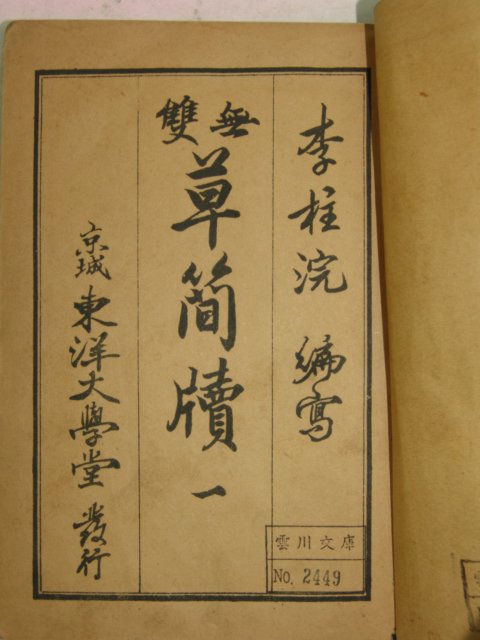 李柱浣 編寫
無雙
草簡牘 一
京城 東洋大學堂 發行
雲川文庫
No. 2449